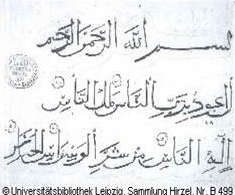 بسم الله الرحمن الرحيم
اعوذ برب الناس ملك الناس
اله الناس من شر الوسواس الخناس
© Universitätsbibliothek Leipzig, Sammlung Hirzel, Nr. B